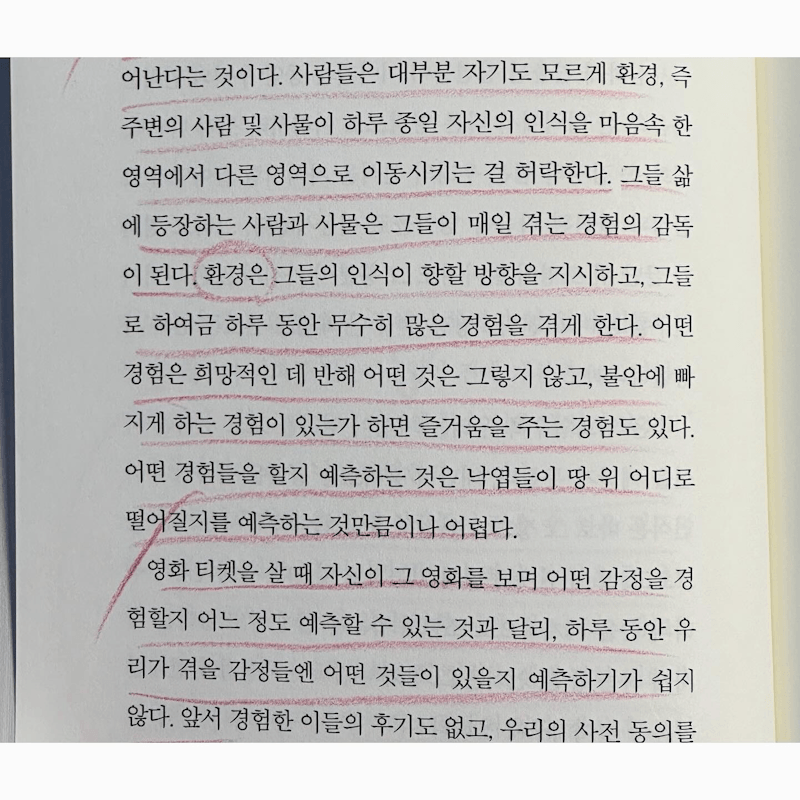 어난다는 것이다. 사람들은 대부분 자기도 모르게 환경, 즉
주변의 사람 및 사물이 하루 종일 자신의 인식을 마음속 한
영역에서 다른 영역으로 이동시키는 걸 허락한다. 그들 삶
에 등장하는 사람과 사물은 그들이 매일 겪는 경험의 감독
이 된다. 환경은 그들의 인식이 향할 방향을 지시하고, 그들
로 하여금 하루 동안 무수히 많은 경험을 겪게 한다. 어떤
경험은 희망적인 데 반해 어떤 것은 그렇지 않고, 불안에 빠
지게 하는 경험이 있는가 하면 즐거움을 주는 경험도 있다.
어떤 경험들을 할지 예측하는 것은 낙엽들이 땅 위 어디로
떨어질지를 예측하는 것만큼이나 어렵다.
영화 티켓을 살 때 자신이 그 영화를 보며 어떤 감정을 경
험할지 어느 정도 예측할 수 있는 것과 달리, 하루 동안 우
리가 겪을 감정들엔 어떤 것들이 있을지 예측하기가 쉽지
않다. 앞서 경험한 이들의 후기도 없고, 우리의 사전 동의를